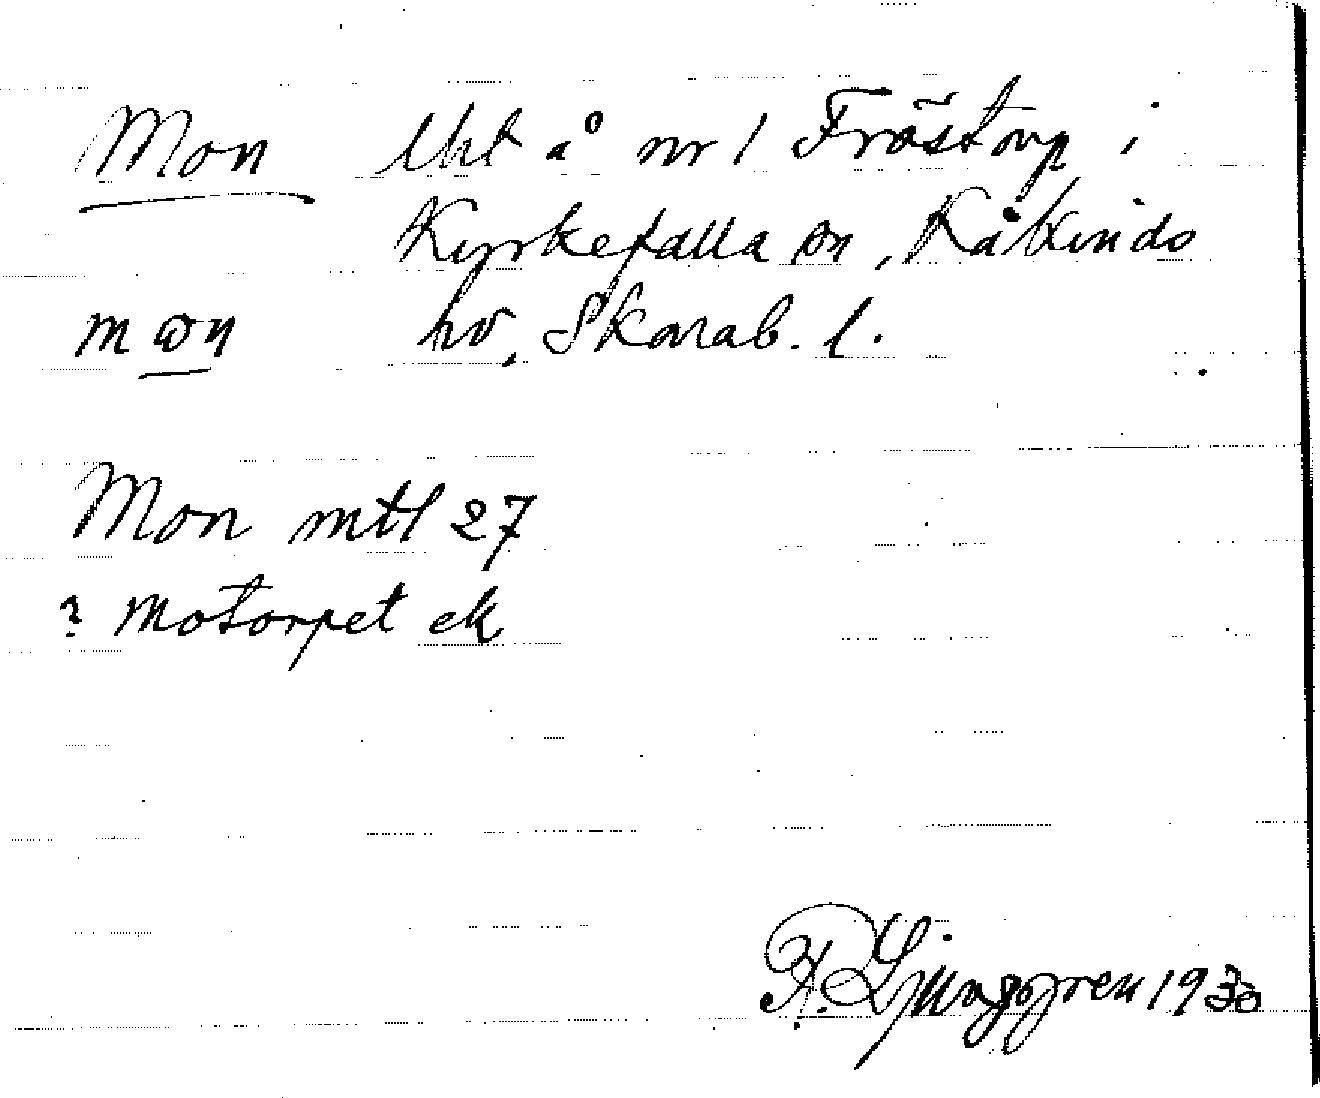 Mon lht å nr 1 Fröstorp i
Kyrkefalla sn, Kåkinds
mωn hd, Skarab. l.
Mon mtl 27
? Motorpet ek
R. Ljunggren 1930